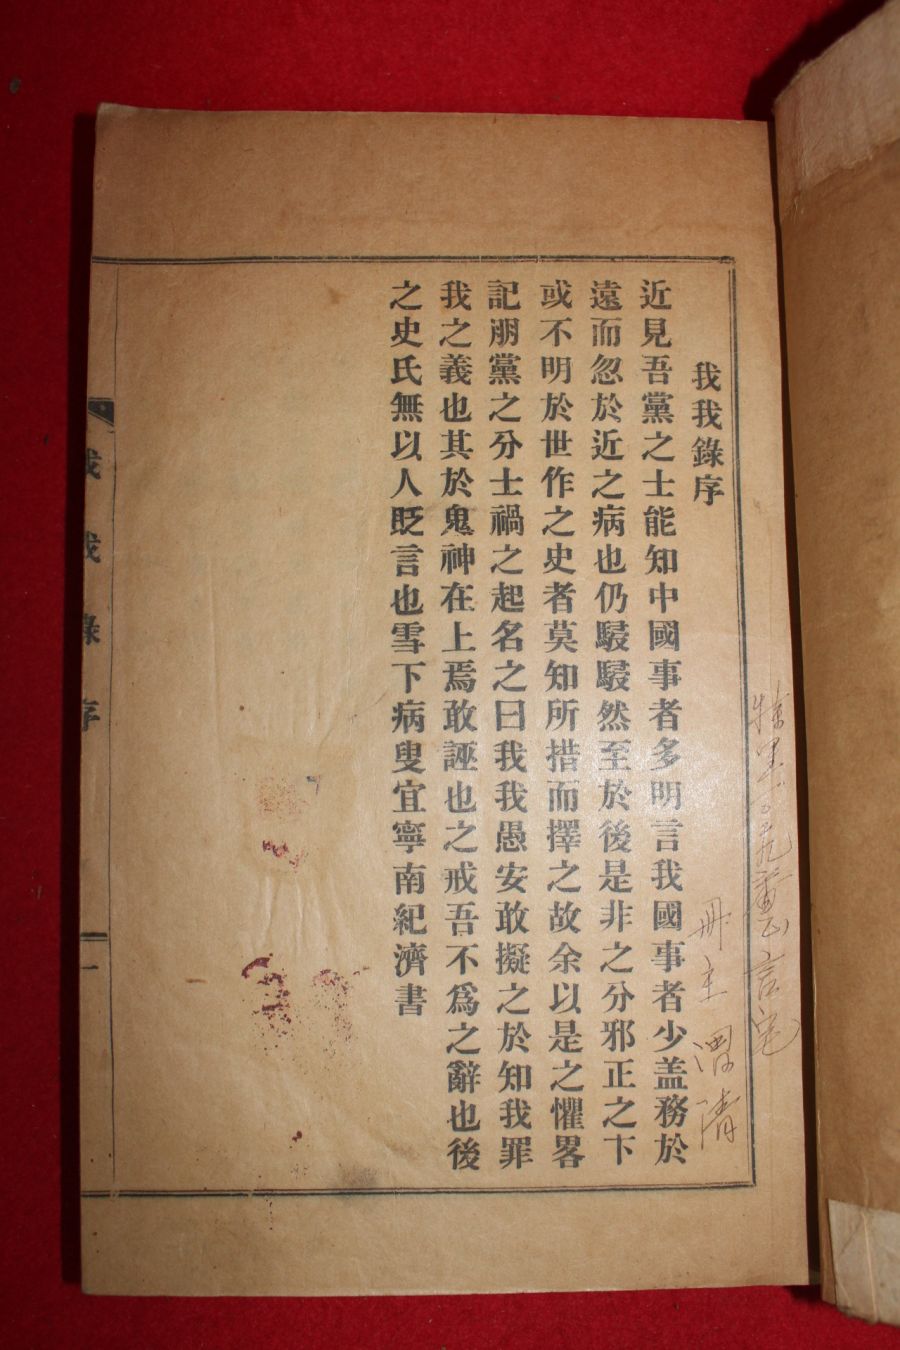 我我錄序
近見吾黨之士能知中國事者多明言我國事者少盖務於
遠而忽於近之病也仍駸駸然至於後是非之分邪正之下
或不明於世作之史者莫知所措而擇之故余以是之懼畧
記朋黨之分士禍之起名之曰我我愚安敢擬之於知我罪
我之義也其於鬼神在上焉敢誣也之戒吾不爲之辭也後
之史氏無以人貶言也雪下病叟宜寧南紀濟書
我我錄序
一
冊主